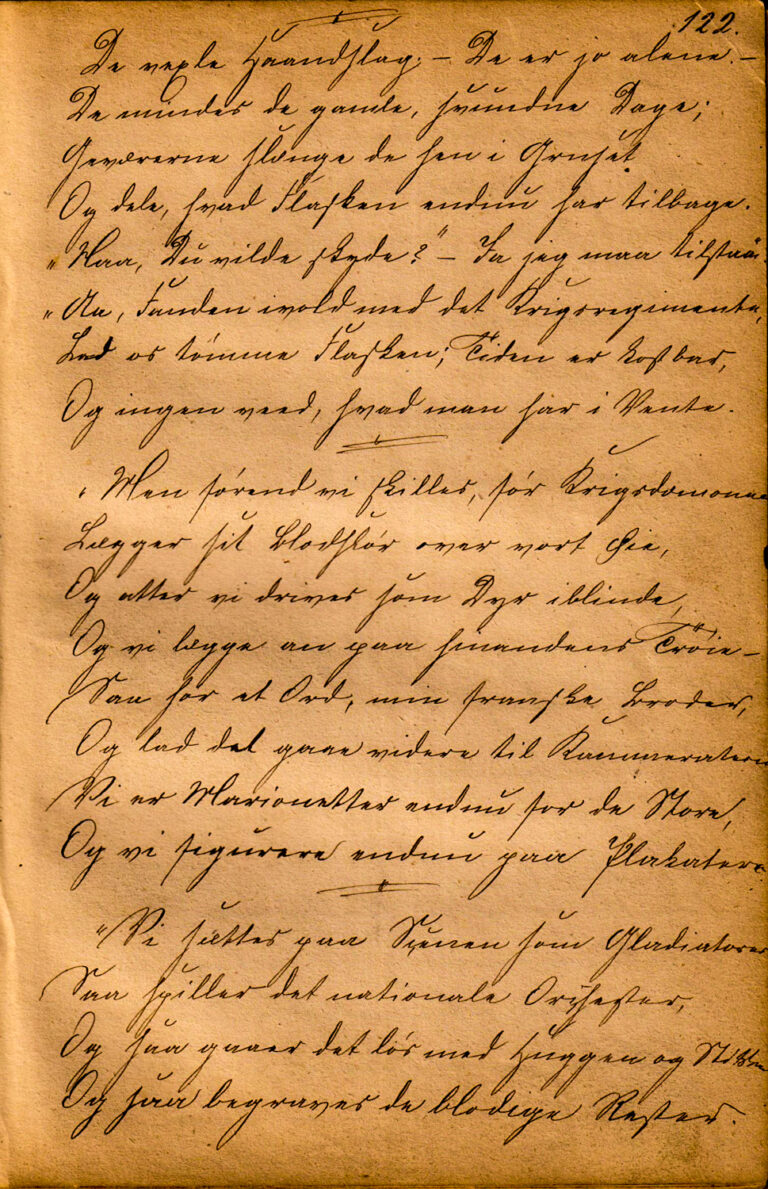 122.
De vexle Haandslag; – De er jo alene. –
De mindes de gamle, svundne Dage;
Geværerne slænge de hen i Gruset
Og dele, hvad Flasken endnu har tilbage.
"Naa, Du vilde skyde?" – Ja jeg maa tilstaae
"Aa, Fanden ivold med det Krigsregimente,
Lad os tømme Flasken; Tiden er kostbar,
Og ingen veed, hvad man har i Vente.
"Men førend vi skilles, før Krigsdæmonen
Lægger sit Blodslør over vort Øie,
Og atter vi drives som Dyr iblinde,
Og vi lægge an paa hinandens Trøie –
Saa hør et Ord, min franske Broder,
Og lad det gaae videre til Kammeraterne
Vi er Marionetter endnu for de Store,
Og vi figurere endnu paa Plakaterne
"Vi sættes paa Scenen som Gladiatorer
Saa spiller det nationale Orchester,
Og saa gaaer det løs med Huggen og Stikken
Og saa begraves de blodige Rester.